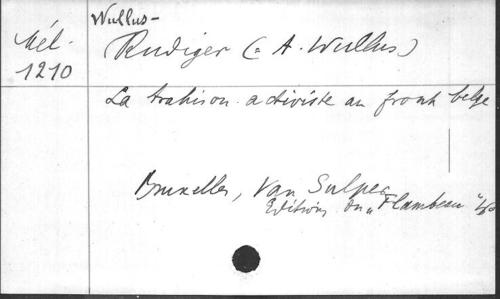 Mél.
1210
Wullus-
Rudiger (= A. Wullus)
La trahison activiste au front belge
Bruxelles, Van Sulper
Editions du "Flambeau"